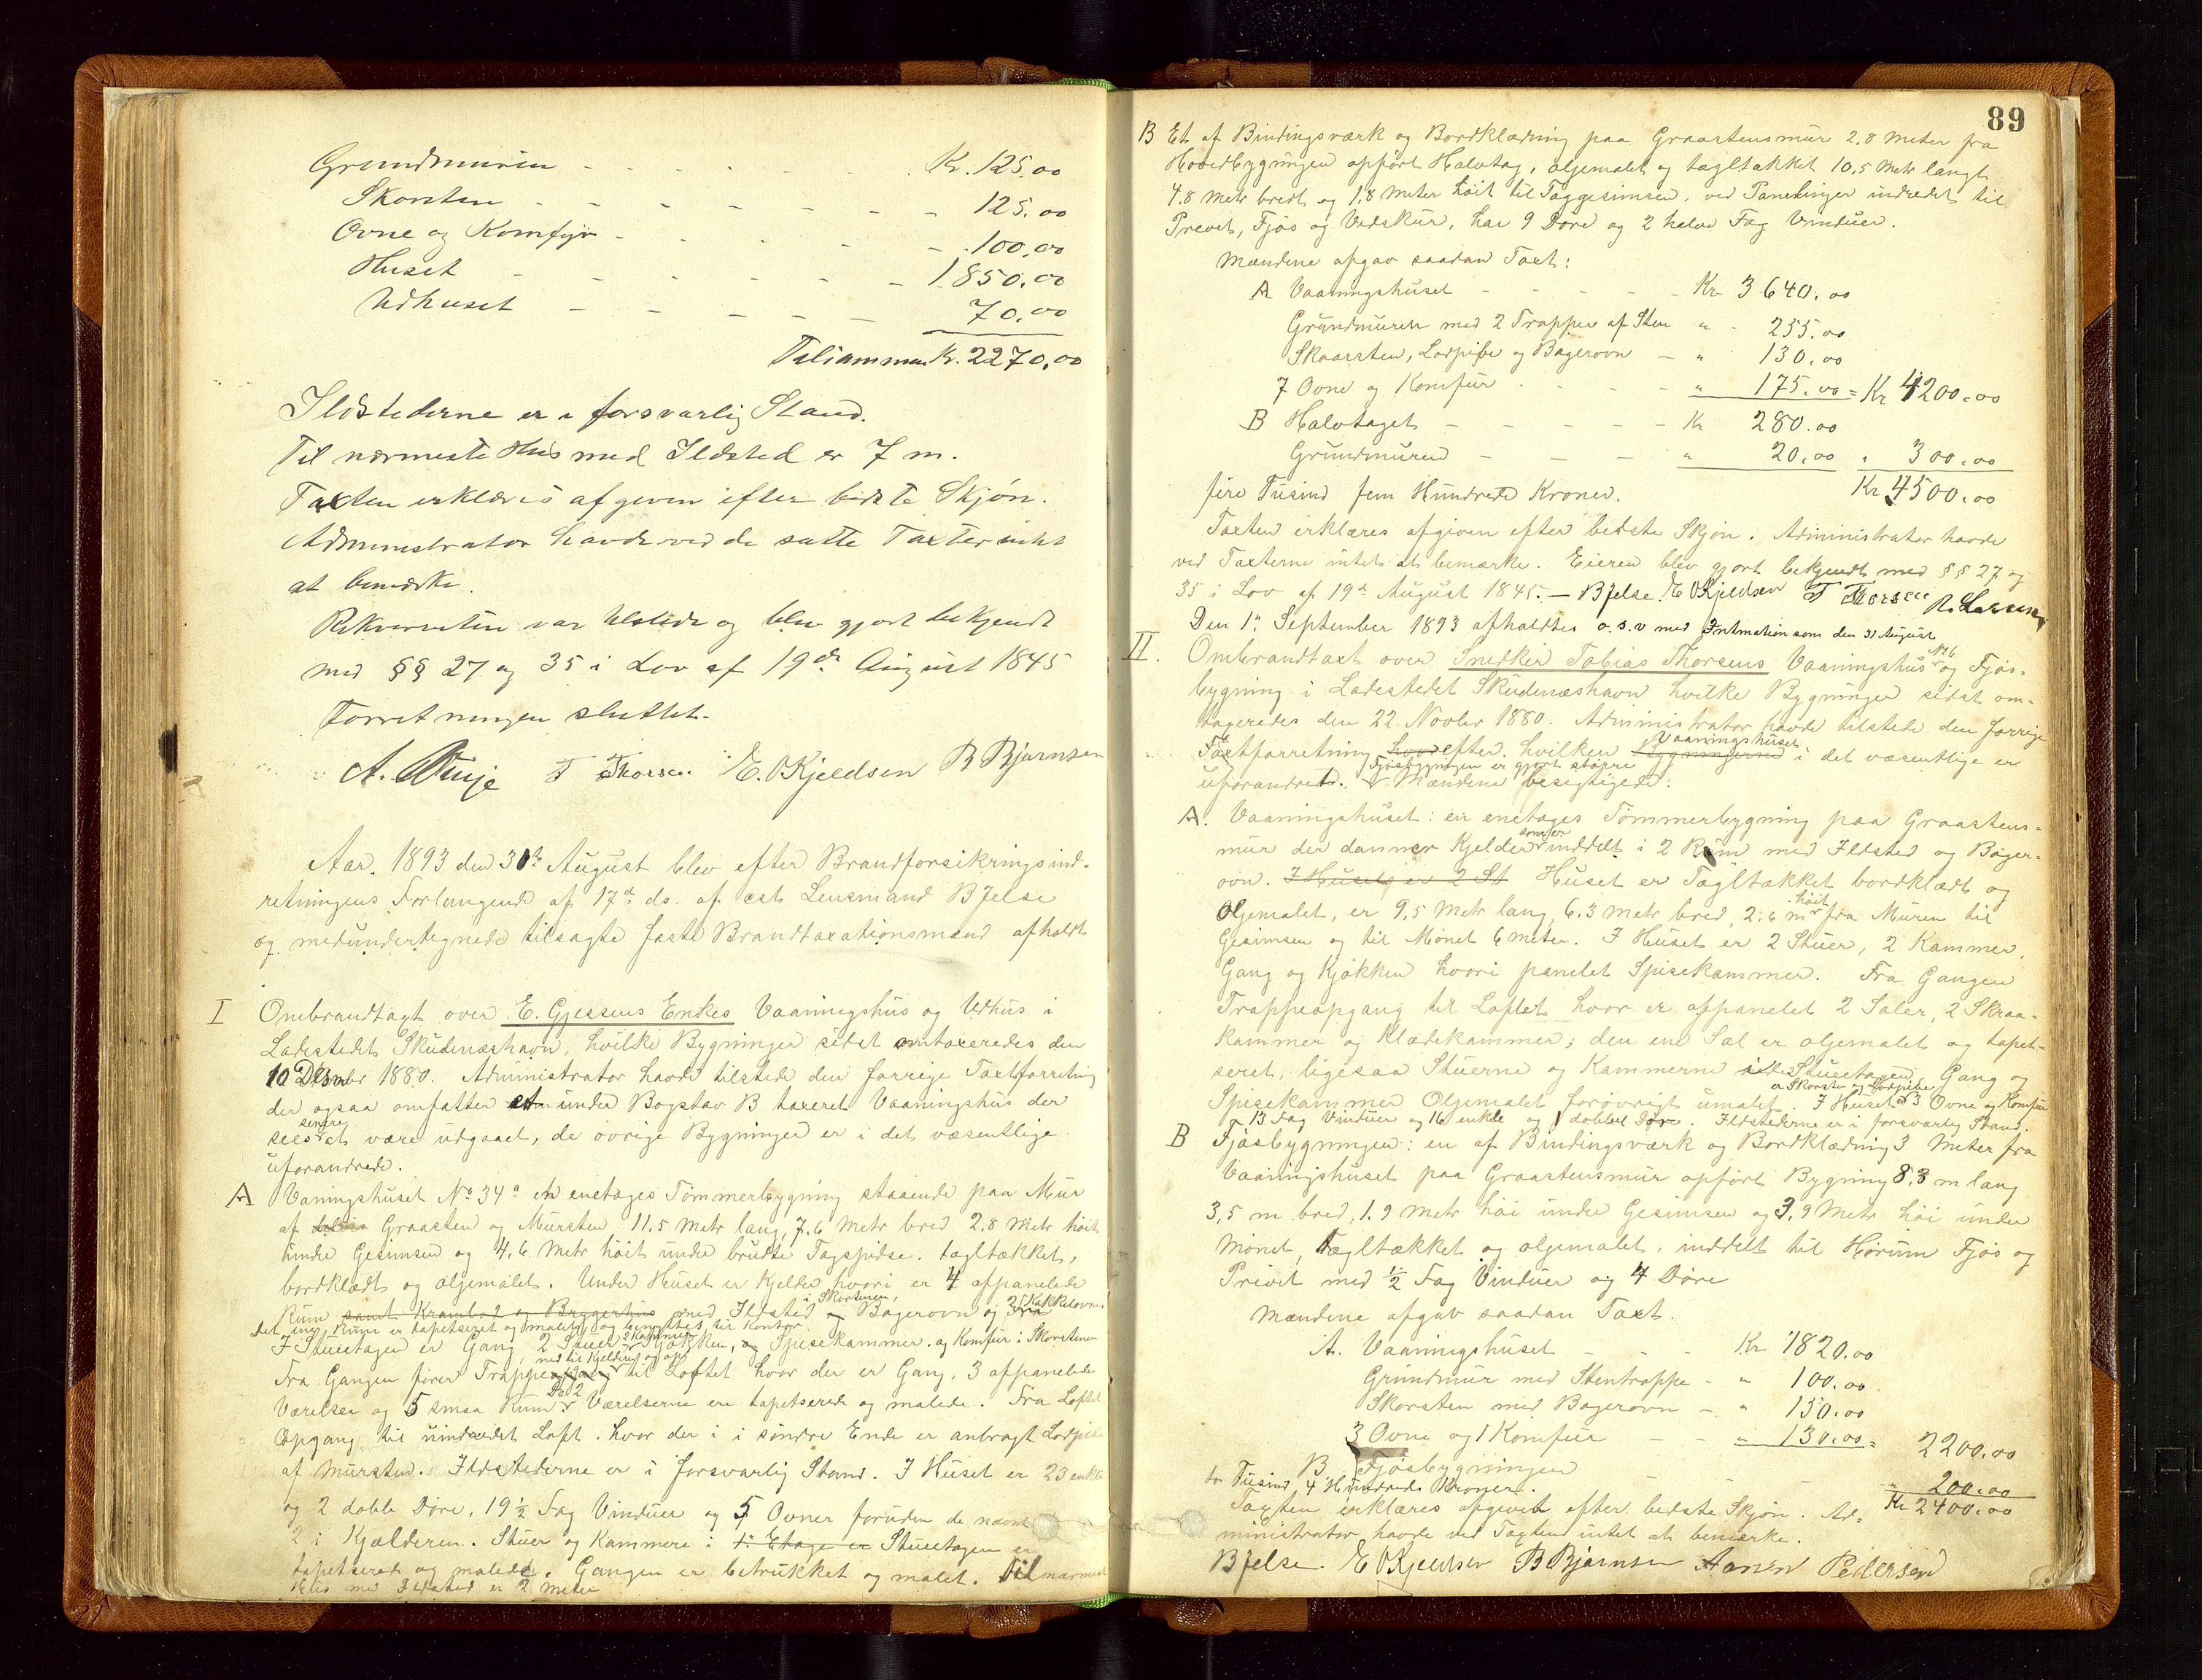 Grundmuren - - - - - - Kr. 125.00
Skorsten - - - - - - - 125.00
Ovne og Komfyr - - - - - 100.00
Huset - - - - - - 1850.00
Udhuset - - - - - 70.00
Tilsammen Kr. 2270.00
Ildstederne er i forsvarlig Stand.
Til nærmeste Hus med Ildsted er 7 m.
Taxten erklæres afgiven efter bedste Skjøn.
Administrator havde ved de satte Taxter intet
at bemærke.
Rekvirenten var tilstede og blev gjort bekjendt
med §§ 27 og 35 i Lov af 19de August 1845
Forretningen sluttet.
T Thorsen E. O Kjeldsen B Bjørnsen
Aar. 1893 den 31te August blev efter Brandforsikringsind-
retningens Forlangende af 17d ds. af cst. Lensmand B Jelse
og medundertegnede tilsagte faste Brandtaxationsmænd afholdt
I Ombrandtaxt over E. Gjessens Enkes Vaaningshus og Udhus i
Ladestedet Skudesnæshavn, hvilke Bygninger sidst omtaxeredes den
10 Dember 1880. Administrator havde tilstede den forrige Taxtforretning
der ogsaa omfatter et under Bogstav B taxeret Vaaningshus der
senere
sees at være udgaaet, de øvrige Bygninger er i det væsentlige
uforandrede.
A Vaningshuset No 34a en enetages Tømmerbygning staaende paa Mur
af Graasten og Mursten 11.5 Metr lang, 7.6 Metr bred 2.8 Metr høit
under Gesimsen og 4.6 Metr høit under brudte Tagspidse. tagltækket,
bordklædt og oljemalet. Under Huset er Kjelder hvori er 4 afpanelede
i Skorstenen,
Rum samt Krambod og Bryggerhus med Ildsted og Bagerovn og 2 Kakkelovne.
det ene Rum er tapetseret og malet og benyttes til Kontor
I Stuetagen er Gang, 2 Stuer, 2 Kammer Kjøkken, og Spisekammer. og Komfur i Skorstenen
ned til Kjelderen og op
Fra Gangen fører Trappe til Loftet hvor der er Gang, 3 afpanelede
De 2
Værelser og 5 smaa Rum Værelserne ere tapetserede og malede. Fra Loftet
Opgang til uindredet Loft. hvor der i i søndre Ende er anbragt Lodpibe
af Mursten. Ildstederne er i forsvarlig Stand. I Huset er 23 enkle
og 2 doble Døre, 19½ Fag Vinduer og 5 Ovner foruden de nævnte
2 i Kjælderen. Stuer og Kammere i 1e Etage er Stuetagen er
tapetserede og malede. Gangen er betrukket og malet. Til nærmeste
Hus med Ildsted er 2 meter
89
B Et af Bindingsværk og Bordklædning paa Graastensmur 2.8 Meter fra
Hovedbygningen opført Halvtag, oljemalet og tagltækket 10.5 Metr langt
4.8 Metr bredt og 1.8 Meter høit til Taggesimsen, ved Panelinger indredet til
Prevet, Fjøs og Vedskur, har 9 Døre og 2 halve Fag Vinduer.
Mændene afgav saadan Taxt:
A Vaaningshuset - - - - - Kr 3640.00
Grundmuren med 2 Trapper af Sten " - 255.00
Skaarsten, Lodpibe og Bagerovn - " 130.00
7 Ovne og Komfur - - - - " 175.00 = Kr 4200.00
B Halvtaget - - - - - Kr 280.00
Grundmuren - - - - " 20.00 " 300.00
fire Tusind fem Hundrede Kroner. Kr 4500.00
Taxten erklæres afgiven efter bedste Skjøn. Administrator havde
ved Taxterne intet at bemærke. Eieren blev gjort bekjendt med §§ 27 og
35 i Lov af 19de August 1845. - B Jelse. E O Kjeldsen T Thorsen R. Larsen
Den 1e September 1893 afholdtes o.s.v med Intmation som den 31 August
II. Ombrandtaxt over Snedker Tobias Thorsens Vaaningshus No 6. og Fjøs-
bygning i Ladestedet Skudesnæshavn hvilke Bygninger sidst om-
tageredes den 22 Novbr 1880. Administrator havde tilstede den forrige
Vaaningshuset
Taxtforretning hvor efter hvilken Bygningerne i det væsentlige er
Fjøsbygningen er gjort større
uforandret. Mændene besigtigede:
A. Vaaningshuset: en enetages Tømmerbygning paa Graastens-
som er
mur der danner Kjelder inddelt i 2 Rum med Ildsted og Bager-
ovn. I Huset er 2 St Huset er Tagltækket bordklædt og
høit
Oljemalet, er 9,5 Metr lang, 6.3 Metr bred, 2.6 mr fra Muren til
Gesimsen og til Mønet 6 meter. I Huset er 2 Stuer, 2 Kammer,
Gang og Kjøkken hvori panelet Spisekammer. Fra Gangen
Trappeopgang til Loftet hvor er afpanelet 2 Saler, 2 Skraa-
kammer og Klædekammer; den ene Sal er oljemalet og tapet-
seret, ligesaa Stuerne og Kammerne i Stuetagen, Gang og
er Skorsten og Lodpibe
Spisekammer Oljemalet forøvrigt umalet. I Huset 3 Ovne og Komfur
13 Fag Vinduer og 16 enkle og 1 dobbel Døre. Ildstederne er i forsvarlig Stand.
B Fjøsbygningen: en af Bindingsværk og Bordklædning 3 Meter fra
Vaaningshuset paa Graastensmur opført Bygning 8.3 m lang
3,5 m bred, 1.9 Metr høi under Gesimsen og 3,9 Metr høi under
Mønet, Tagltækket og oljemalet, inddelt til Hørum Fjøs og
Privet med ½ Fag Vinduer og 4 Døre
Mændene afgav saadan Taxt.
A. Vaaningshuset - - - Kr 1820.00
Grundmur med Stentrappe - " 100.00
Skorsten med Bagerovn - " 150.00
3 Ovne og 1 Komfur - - " 130.00 = 2200.00
B Fjøsbygningen - - - - " 200.00
to Tusind 4 Hundrede Kroner. Kr 2400.00
Taxten erklæres afgivet efter bedste Skjøn. Ad-
ministrator havde ved Taxten intet at bemærke.
B Jelse. E O Kjeldsen B Bjørnsen Pedersen